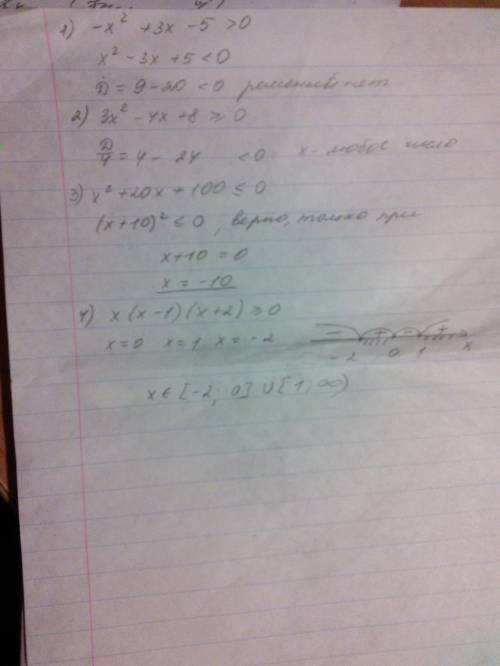 1) -x² + 3x - 5 > 0
x² - 3x + 5 < 0
D = 9 - 20 < 0 решений нет
2) 3x² - 4x + 8 ≥ 0
D/4 = 4 - 24 < 0 x - любое число
3) x² + 20x + 100 ≤ 0
(x + 10)² ≤ 0, верно, только при
x + 10 = 0
x = -10
4) x (x - 1) (x + 2) ≥ 0
x = 0 x = 1 x = -2
- + - +
-2 0 1 x
x ∈ [-2; 0] ∪ [1; ∞)